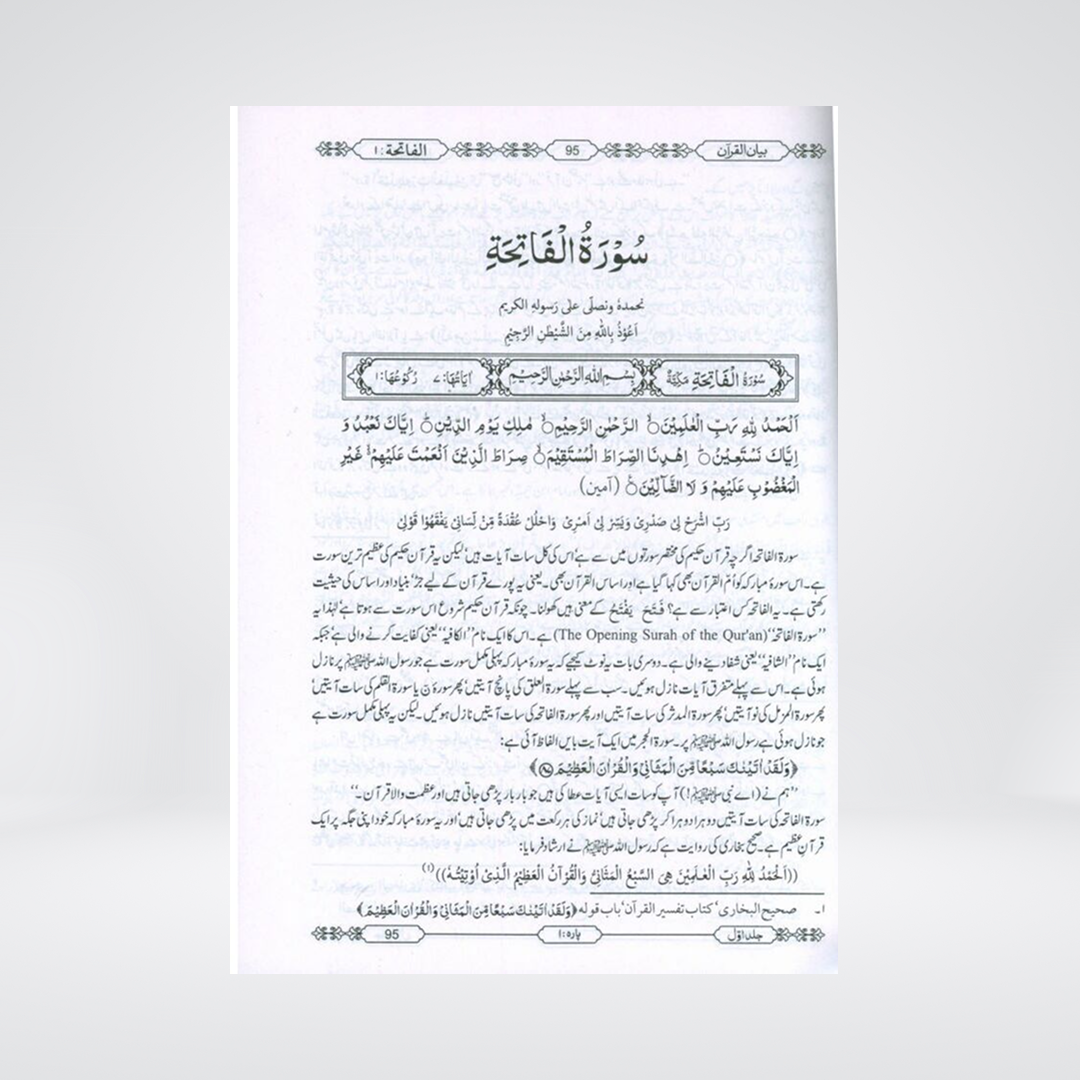 بیان القرآن 95 الفاتحة : ۱
سُوْرَةُ الْفَاتِحَةِ
نحمدهٗ ونصلّی علیٰ رَسولهِ الکریم
اَعُوْذُ بِاللّٰهِ مِنَ الشَّيْطٰنِ الرَّجِيْمِ
سُوْرَةُ الْفَاتِحَةِ مَكِّيَّةٌ بِسْمِ اللّٰهِ الرَّحْمٰنِ الرَّحِيْمِ اٰيَاتُهَا: ۷ رُكُوْعُهَا: ۱
اَلْحَمْدُ لِلّٰهِ رَبِّ الْعٰلَمِيْنَ ۙ الرَّحْمٰنِ الرَّحِيْمِ ۙ مٰلِكِ يَوْمِ الدِّيْنِ ؕ اِيَّاكَ نَعْبُدُ وَ
اِيَّاكَ نَسْتَعِيْنُ ؕ اِهْدِنَا الصِّرَاطَ الْمُسْتَقِيْمَ ۙ صِرَاطَ الَّذِيْنَ اَنْعَمْتَ عَلَيْهِمْ ۙ غَيْرِ
الْمَغْضُوْبِ عَلَيْهِمْ وَ لَا الضَّآلِّيْنَ (آمین)
رَبِّ اشْرَحْ لِیْ صَدْرِیْ وَيَسِّرْ لِیْ اَمْرِیْ وَاحْلُلْ عُقْدَةً مِّنْ لِّسَانِیْ يَفْقَهُوْا قَوْلِیْ
سورۃ الفاتحہ اگرچہ قرآن حکیم کی مختصر سورتوں میں سے ہے، اس کی کل سات آیات ہیں، لیکن یہ قرآن حکیم کی عظیم ترین سورت
ہے۔ اس سورۂ مبارکہ کو اُم القرآن بھی کہا گیا ہے اور اساس القرآن بھی۔ یعنی یہ پورے قرآن کے لیے جڑ، بنیاد اور اساس کی حیثیت
رکھتی ہے۔ یہ الفاتحہ کس اعتبار سے ہے؟ فَتَحَ یَفْتَحُ کے معنی ہیں کھولنا۔ چونکہ قرآن حکیم شروع اس سورت سے ہوتا ہے لہٰذا یہ
’’سورۃ الفاتحہ‘‘ (The Opening Surah of the Qur'an) ہے۔ اس کا ایک نام ’’الکافیہ‘‘ یعنی کفایت کرنے والی ہے، جبکہ
ایک نام ’’الشافیہ‘‘ یعنی شفا دینے والی ہے۔ دوسری بات یہ نوٹ کیجیے کہ یہ سورۂ مبارکہ پہلی مکمل سورت ہے جو رسول اللہ ﷺ پر نازل
ہوئی ہے۔ اس سے پہلے متفرق آیات نازل ہوئیں۔ سب سے پہلے سورۃ العلق کی پانچ آیتیں، پھر سورۂ نٓ یا سورۃ القلم کی سات آیتیں،
پھر سورۃ المزمل کی نو آیتیں، پھر سورۃ المدثر کی سات آیتیں اور پھر سورۃ الفاتحہ کی سات آیتیں نازل ہوئیں۔ لیکن یہ پہلی مکمل سورت ہے
جو نازل ہوئی ہے رسول اللہ ﷺ پر۔ سورۃ الحجر میں ایک آیت بایں الفاظ آئی ہے:
﴿وَلَقَدْ اٰتَيْنٰكَ سَبْعًا مِّنَ الْمَثَانِیْ وَالْقُرْاٰنَ الْعَظِيْمَ ۝۸۷﴾
’’ہم نے (اے نبی ﷺ!) آپ کو سات ایسی آیات عطا کی ہیں جو بار بار پڑھی جاتی ہیں اور عظمت والا قرآن۔‘‘
سورۃ الفاتحہ کی سات آیتیں دوہرا دوہرا کر پڑھی جاتی ہیں، نماز کی ہر رکعت میں پڑھی جاتی ہیں، اور یہ سورۂ مبارکہ خود اپنی جگہ پر ایک
قرآنِ عظیم ہے۔ صحیح بخاری کی روایت ہے کہ رسول اللہ ﷺ نے ارشاد فرمایا:
((اَلْحَمْدُ لِلّٰهِ رَبِّ الْعٰلَمِيْنَ هِیَ السَّبْعُ الْمَثَانِیْ وَالْقُرْآنُ الْعَظِيْمُ الَّذِیْ اُوْتِيْتُهٗ))(۱)
۱۔ صحیح البخاری، کتاب تفسیر القرآن، باب قوله ﴿وَلَقَدْ اٰتَيْنٰكَ سَبْعًا مِّنَ الْمَثَانِیْ وَالْقُرْاٰنَ الْعَظِيْمَ﴾
جلد اوّل پارہ: ۱ 95